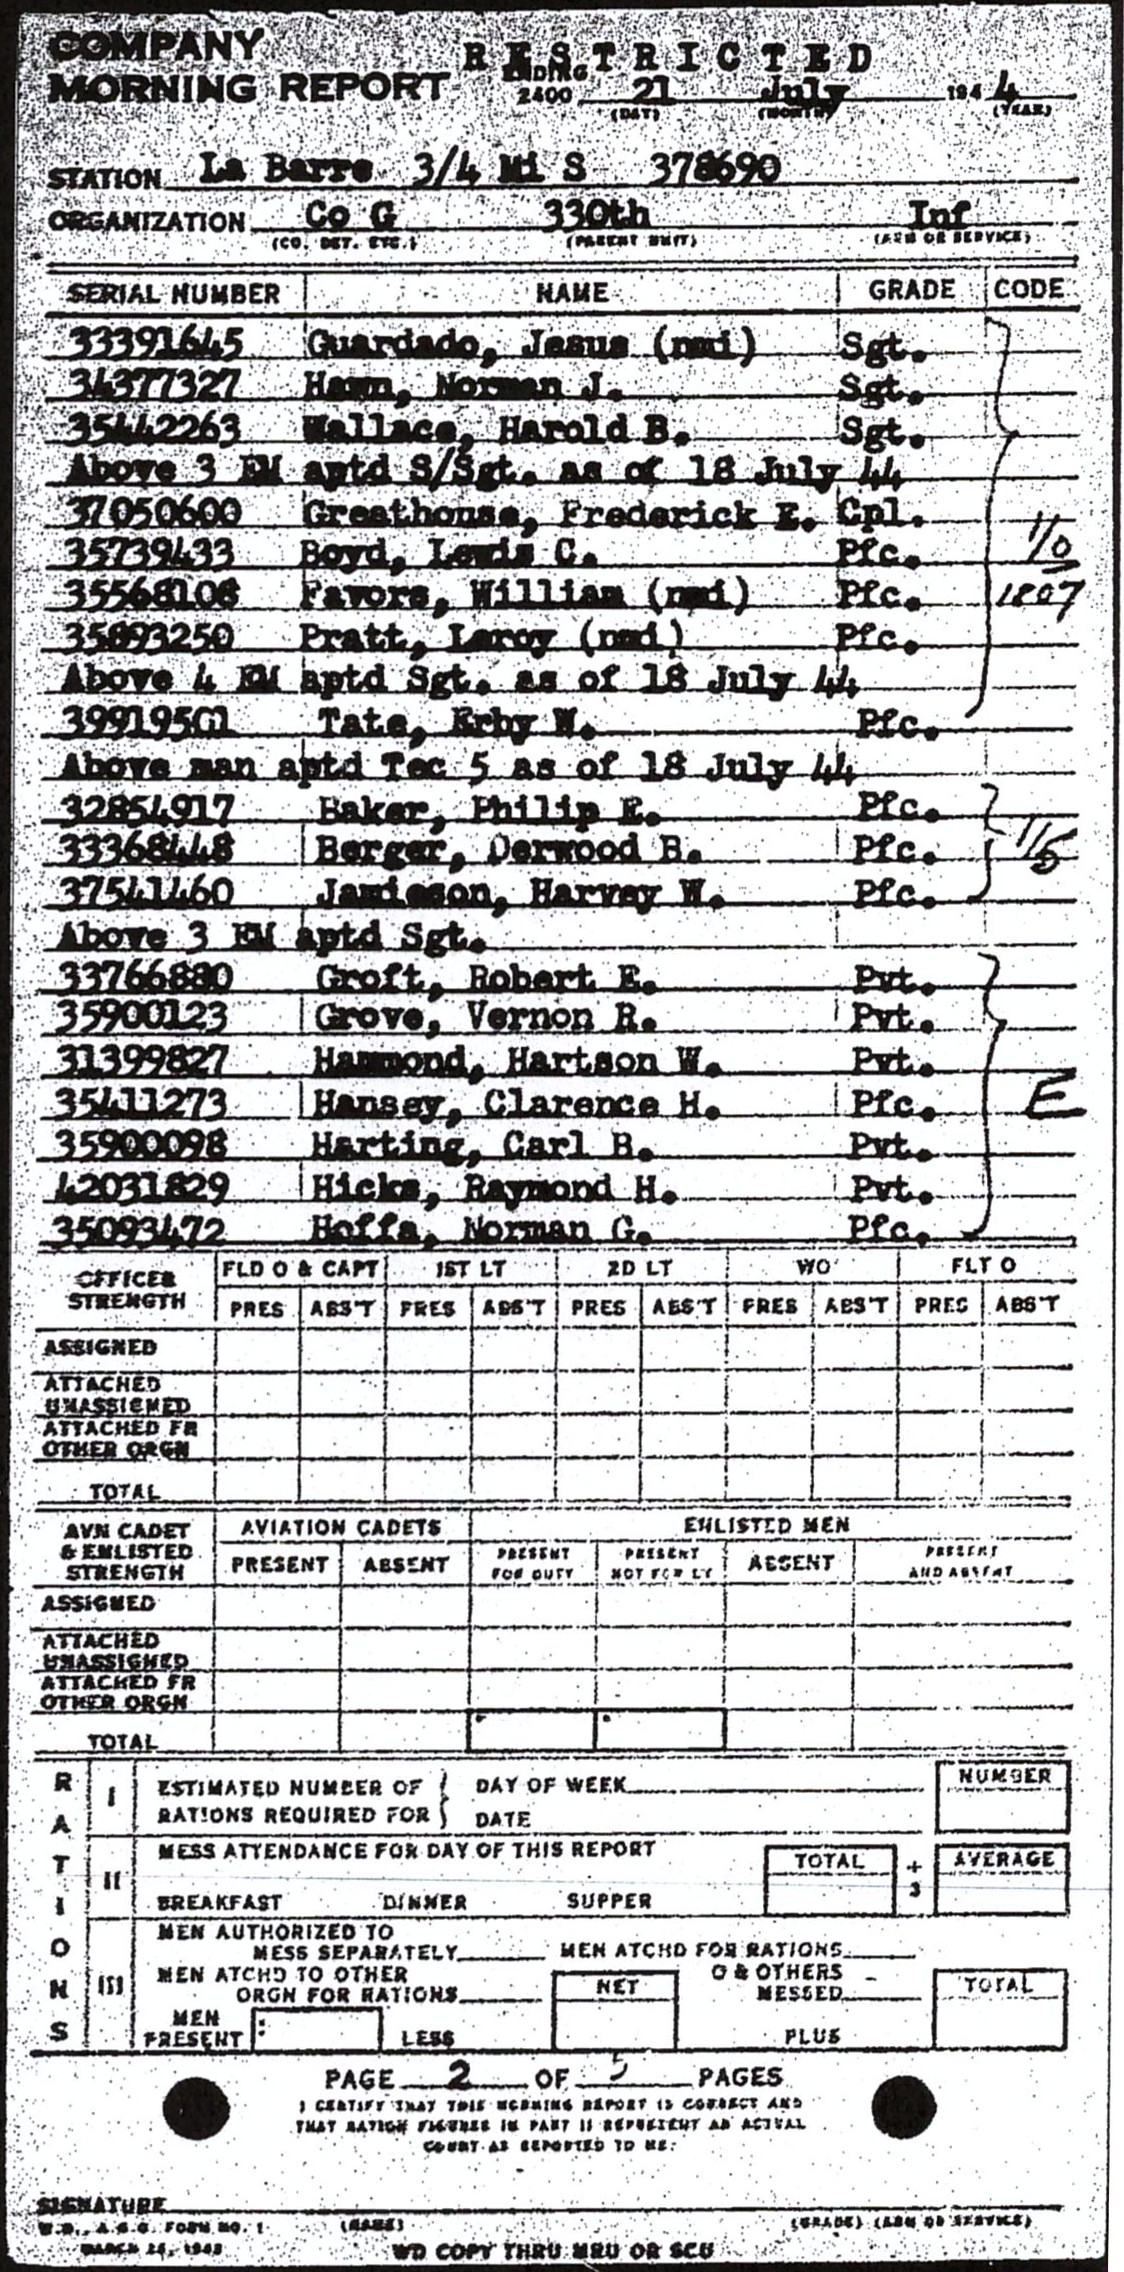 COMPANY
RESTRICTED
MORNING REPORT ENDING 2400 21 July 194 4
(DAY) (MONTH) (YEAR)
STATION La Barre 3/4 Mi S 378690
ORGANIZATION Co G 330th Inf
(CO. DET. ETC.) (PARENT UNIT) (ARM OR SERVICE)
SERIAL NUMBER NAME GRADE CODE
33391645 Guardado, Jesus (nmi) Sgt.
34377327 Hawn, Norman J. Sgt.
35442263 Wallace, Harold B. Sgt.
Above 3 EM aptd S/Sgt. as of 18 July 44
37050600 Greathouse, Frederick E. Cpl.
35739433 Boyd, Lewis C. Pfc. 1/0
35568108 Favors, William (nmi) Pfc. 1807
35893250 Pratt, Leroy (nmi) Pfc.
Above 4 EM aptd Sgt. as of 18 July 44
39919501 Tate, Erby W. Pfc.
Above man aptd Tec 5 as of 18 July 44
32854917 Baker, Philip E. Pfc.
33368448 Berger, Derwood B. Pfc.
37541460 Jamieson, Harvey W. Pfc.
Above 3 EM aptd Sgt.
33766880 Groft, Robert E. Pvt.
35900123 Grove, Vernon R. Pvt.
31399827 Hammond, Hartson W. Pvt.
35411273 Hansey, Clarence H. Pfc. E
35900098 Harting, Carl B. Pvt.
42031829 Hicks, Raymond H. Pvt.
35093472 Hoffa, Norman G. Pfc.
OFFICER STRENGTH FLD O & CAPT 1ST LT 2D LT WO FLT O
PRES ABS'T PRES ABS'T PRES ABS'T PRES ABS'T PRES ABS'T
ASSIGNED
ATTACHED
UNASSIGNED
ATTACHED FR
OTHER ORGN
TOTAL
AVN CADET & ENLISTED STRENGTH AVIATION CADETS ENLISTED MEN
PRESENT ABSENT PRESENT FOR DUTY PRESENT NOT FOR DY ABSENT PRESENT AND ABSENT
ASSIGNED
ATTACHED
UNASSIGNED
ATTACHED FR
OTHER ORGN
TOTAL
RATIONS
I ESTIMATED NUMBER OF DAY OF WEEK NUMBER
RATIONS REQUIRED FOR DATE
II MESS ATTENDANCE FOR DAY OF THIS REPORT TOTAL ÷ 3 AVERAGE
BREAKFAST DINNER SUPPER
III MEN AUTHORIZED TO
MESS SEPARATELY MEN ATCHD FOR RATIONS
MEN ATCHD TO OTHER O & OTHERS
ORGN FOR RATIONS NET MESSED TOTAL
MEN PRESENT LESS PLUS
PAGE 2 OF 5 PAGES
I CERTIFY THAT THIS MORNING REPORT IS CORRECT AND
THAT RATION FIGURES IN PART II REPRESENT AN ACTUAL
COUNT AS REPORTED TO ME:
SIGNATURE
(NAME) (GRADE) (ARM OR SERVICE)
W.D., A.G.O. FORM NO. 1
MARCH 25, 1943
WD COPY THRU MRU OR SCU